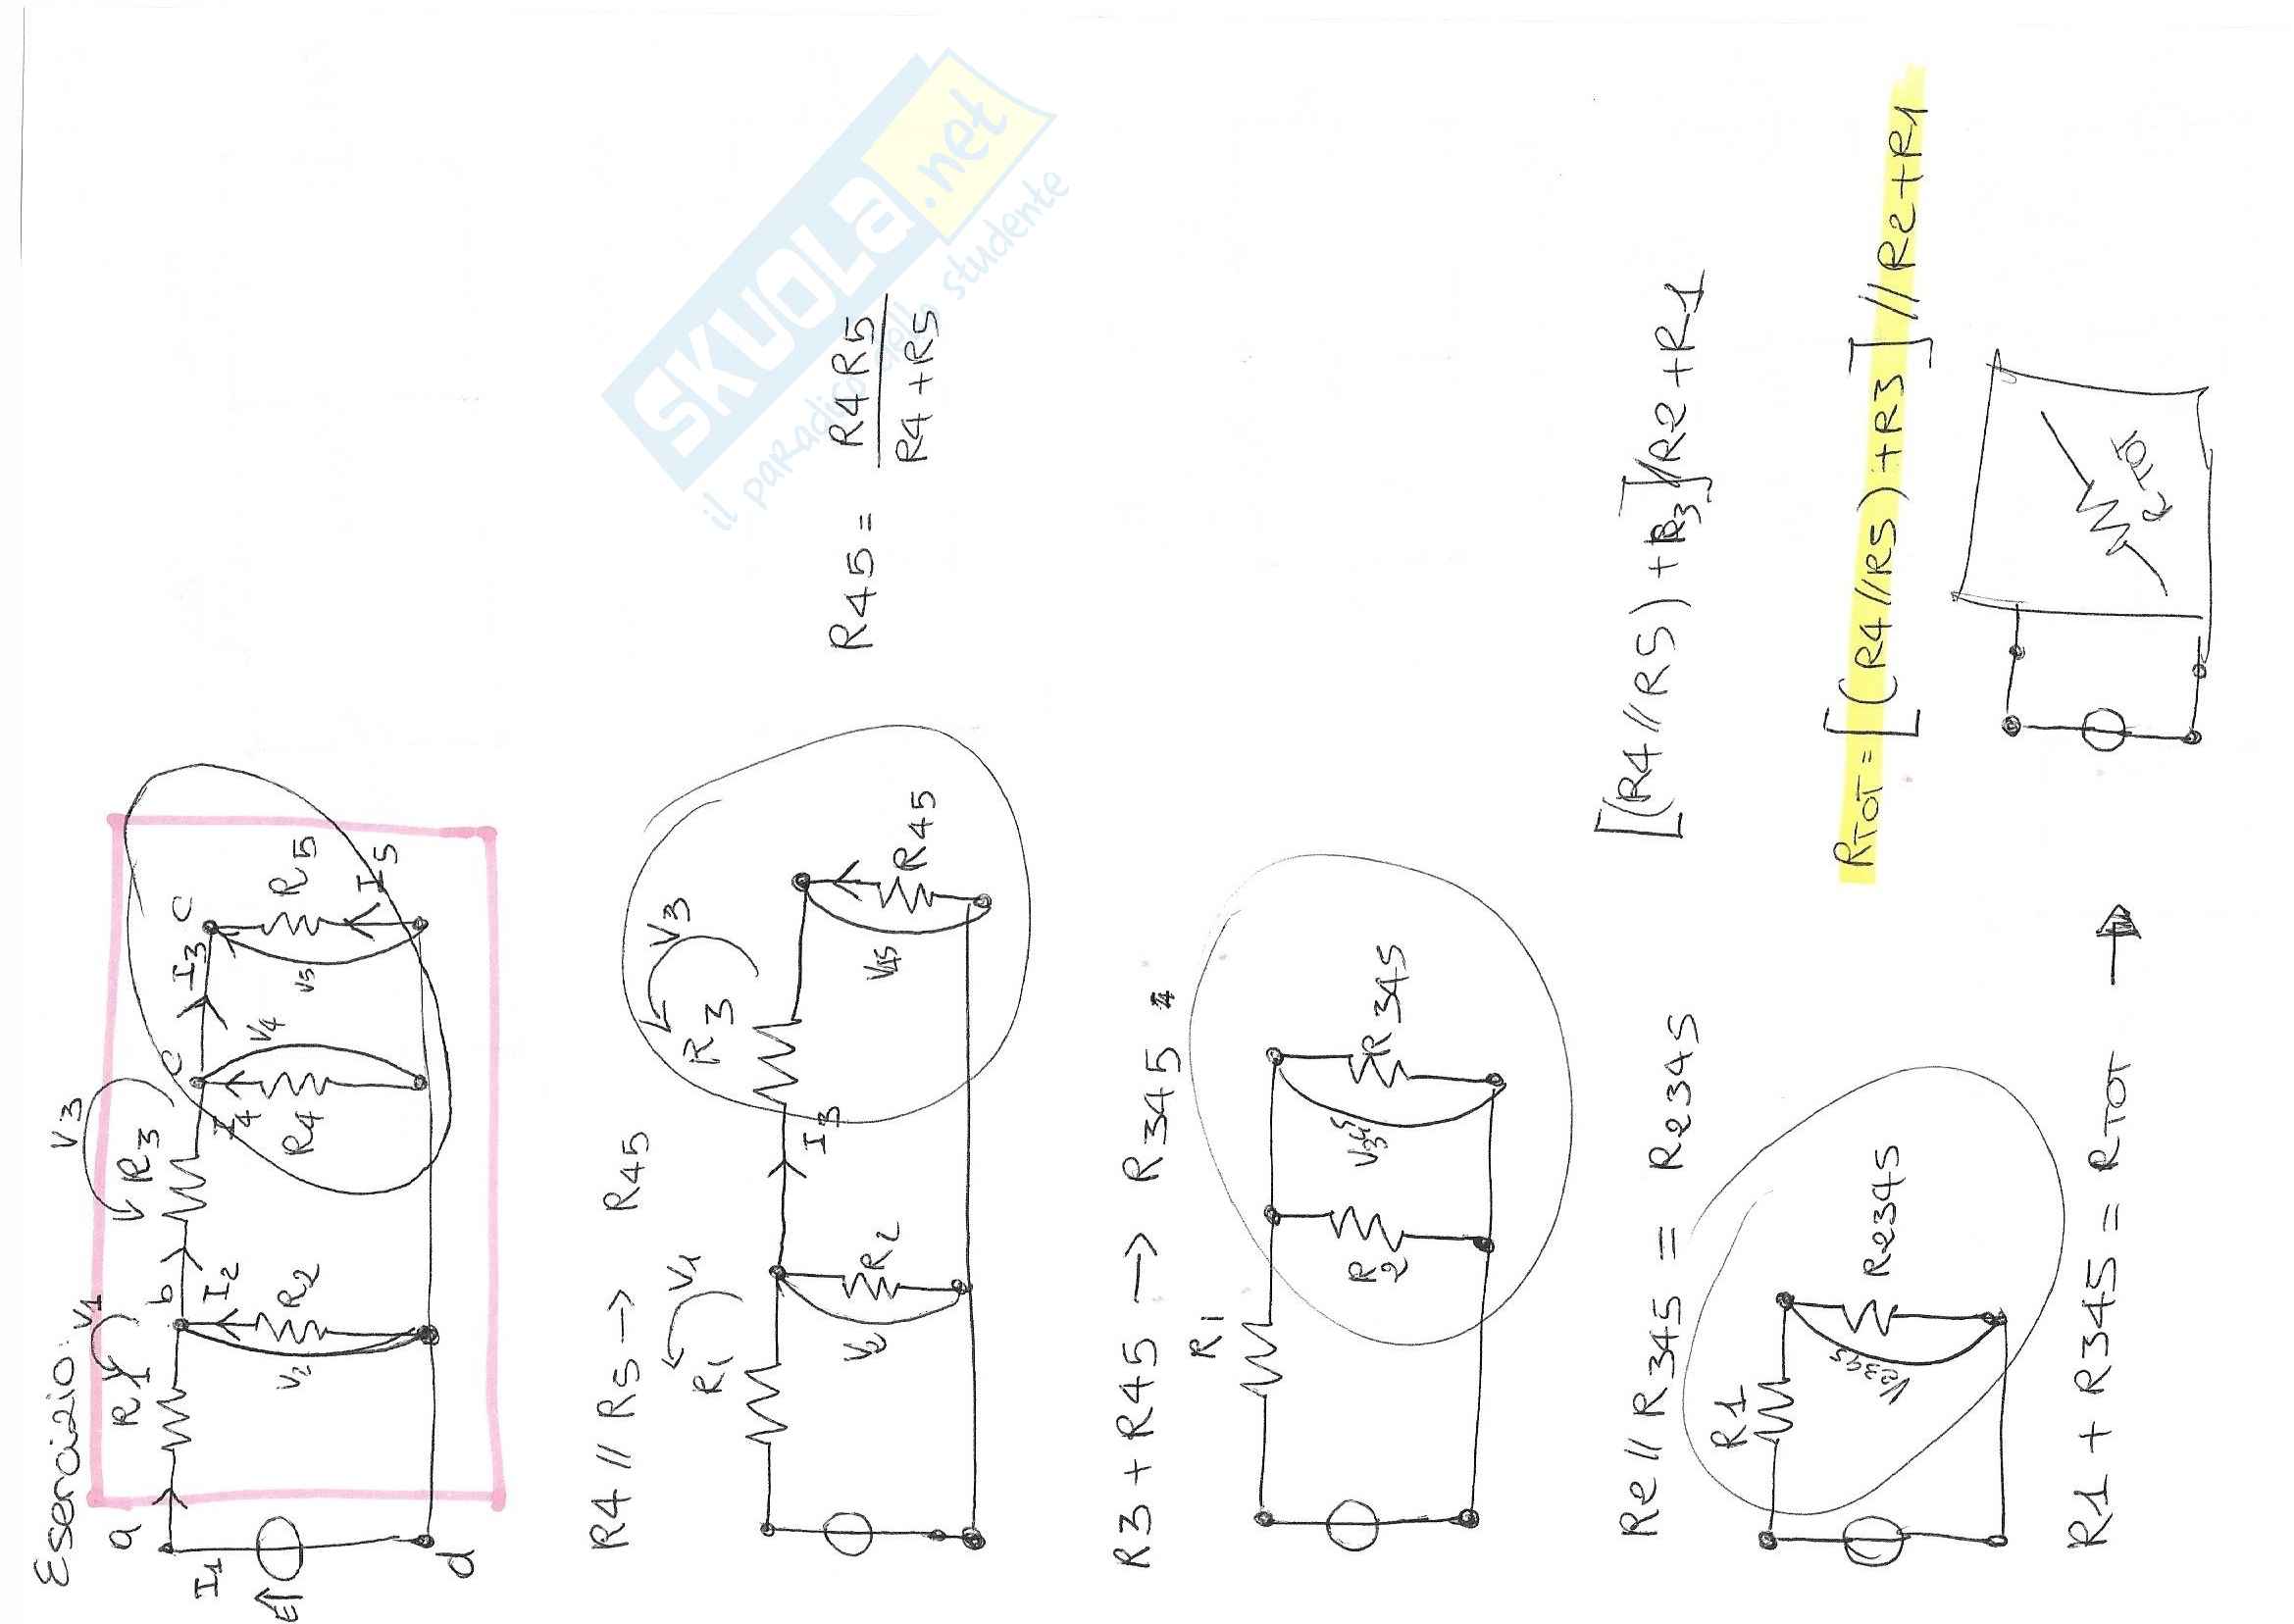 Esserci​zio:
a R1 V1 b R3 V3 c I3 c
I1 I2 I4 V4 R5
E V2 R2 R4 V5 I5
d
R4 // R5 → R45
R1 V1 R3 V3
I3
V2 R2 V45 R45
R45 = R4R5
R4 + R5
R3 + R45 → R345
R1
R2 V345 R345
Re // R345 = R2345
[(R4//R5)+R3]//R2+R1
R1
V2345 R2345
RTOT = [(R4//R5)+R3]//R2+R1
R1 + R345 = RTOT →
RTOT
SKUOLA.net
il paradiso dello studente